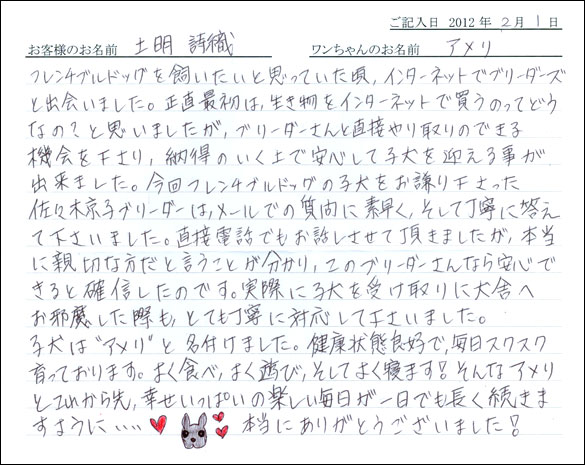 ご記入日 2012年 2月 1日
お客様のお名前 土明 詩織 ワンちゃんのお名前 アメリ
フレンチブルドッグを飼いたいと思っていた頃,インターネットでブリーダーズ
と出会いました。正直最初は,生き物をインターネットで買うのってどう
なの?と思いましたが,ブリーダーさんと直接やり取りのできる
機会を下さり,納得のいく上で安心して子犬を迎える事が
出来ました。今回フレンチブルドッグの子犬をお譲り下さった
佐々木京子ブリーダーは,メールでの質問に素早く,そして丁寧に答え
て下さいました。直接電話でもお話しさせて頂きましたが,本当
に親切な方だと言うことが分かり,このブリーダーさんなら安心で
きると確信したのです。実際に子犬を受け取りに犬舎へ
お邪魔した際も,とても丁寧に対応して下さいました。
子犬は"アメリ"と名付けました。健康状態良好で,毎日スクスク
育っております。よく食べ,よく遊び,そしてよく寝ます!そんなアメリ
とこれから先,幸せいっぱいの楽しい毎日が一日でも長く続きま
すように・・・・ 本当にありがとうございました!